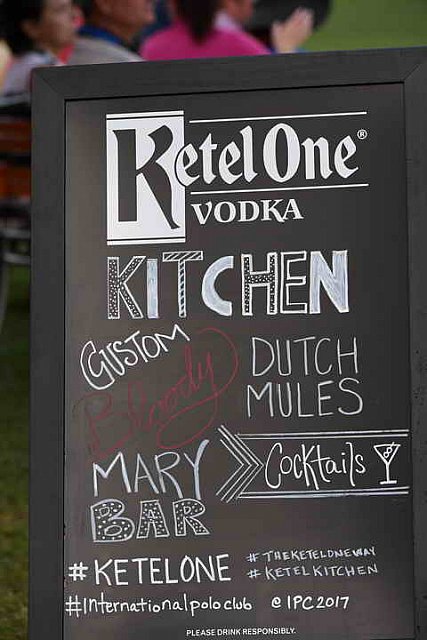 Ketel One®
VODKA
KITCHEN
CUSTOM
Bloody
MARY
BAR
DUTCH
MULES
Cocktails
#KETELONE
#THEKETELONEWAY
#KETELKITCHEN
#Internationalpoloclub @IPC2017
PLEASE DRINK RESPONSIBLY.